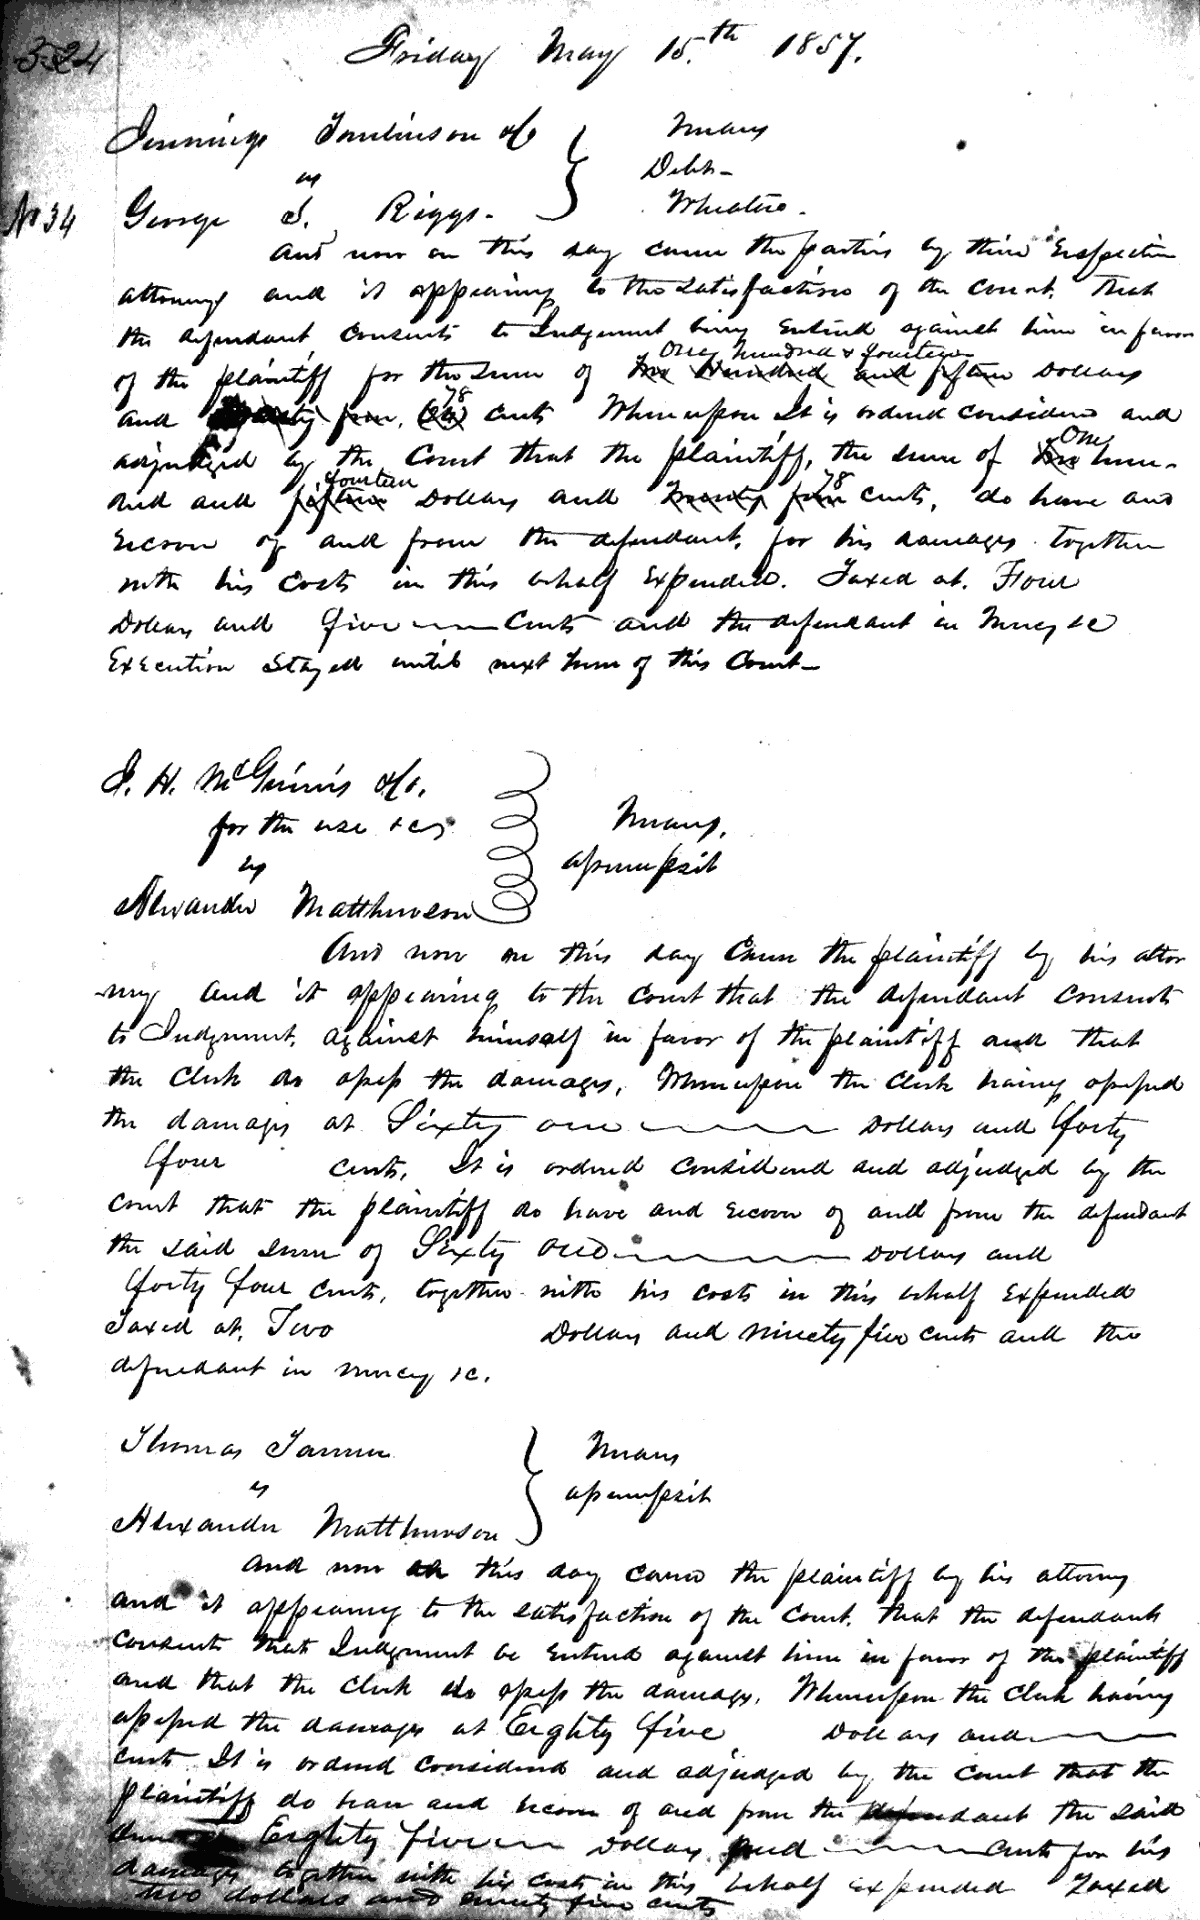 324
Friday May 15.th 1857.
Jennings Tomlinson &Co
vs
No 34 George S. Riggs.
Debt
and now on this day came the parties by their respective
attorneys and it appearing to the satisfaction of the Court. that
the defendant consents to Judgement being entered against him in favor
one hundred & fourteen
of the plaintiff for the sum of two hundred and fifteen Dollars
78
and cents Whereupon It is ordered considered and
One
adjudged by the Court that the plaintiff, the sum of two hun-
fourteen 78
dred and fifteen Dollars and twenty four cents, do have and
recover of and from the defendant, for his damages together
with his costs in this behalf expended. Taxed at. Four
Dollars and five cents and the defendant in mercy &c
Execution Stayed until next term of this Court
J. H. McGinnis &Co.
for the use &c
vs
Alexander Matthewson
assumpsit
And now on this day came the plaintiff by his attor
-ney and it appearing to the court that the defendant consents
to Judgment, against himself in favor of the plaintiff and that
the clerk do assess the damages, Whereupon the clerk having assessed
the damages at Sixty one Dollars and forty
four cents, It is ordered considered and adjudged by the
court that the plaintiff do have and recover of and from the defendant
the said sum of Sixty one Dollars and
forty four cents, together with his costs in this behalf expended
Taxed at, Two Dollars and ninety five cents and the
defendant in mercy &c.
Thomas Tanner
vs
Alexander Matthewson
assumpsit
and now on this day came the plaintiff by his attorney
and it appearing to the satisfaction of the Court. that the defendant
consents that Judgment be entered against him in favor of the plaintiff
and that the clerk do assess the damages, Whereupon the clerk having
assessed the damages at Eighty five Dollars and
cents It is ordered considered and adjudged by the court that the
plaintiff do have and recover of and from the defendant the said
sum Eighty five Dollars and cents for his
damages together with his costs in this behalf expended Taxed
two dollars and ninety five cents